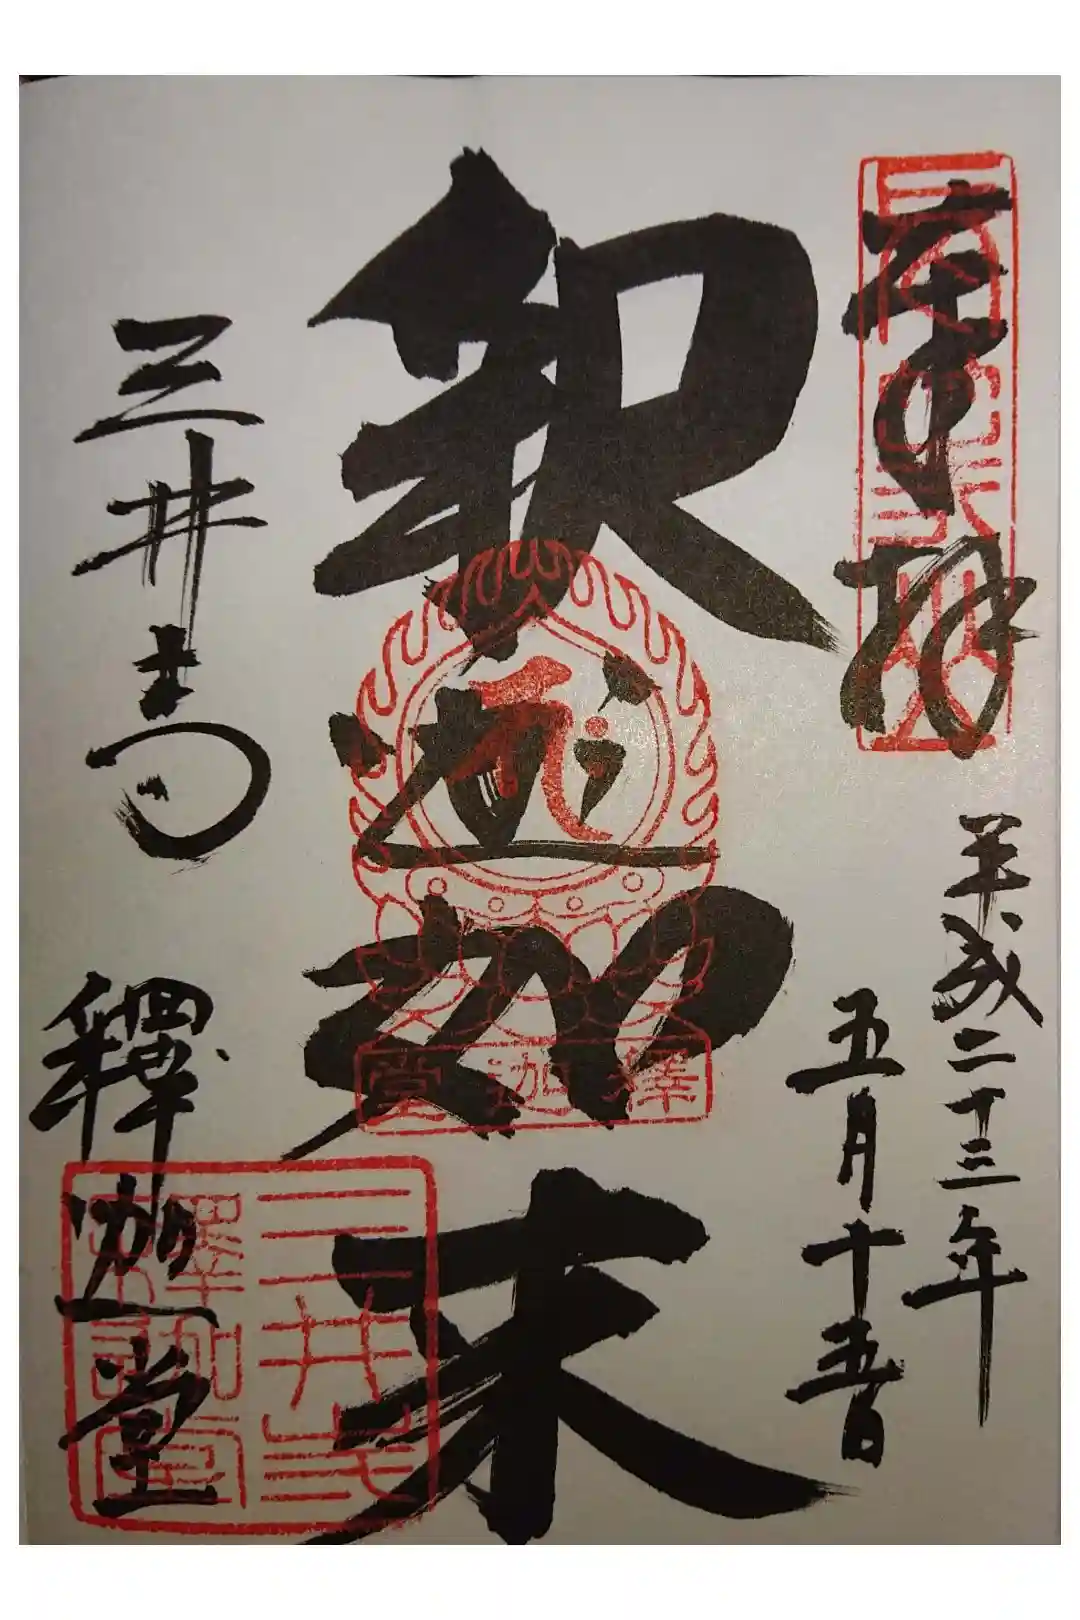 奉拝
平成二十三年
五月十五日
釈迦如来
釋迦堂
三井寺
釋迦堂
三井寺